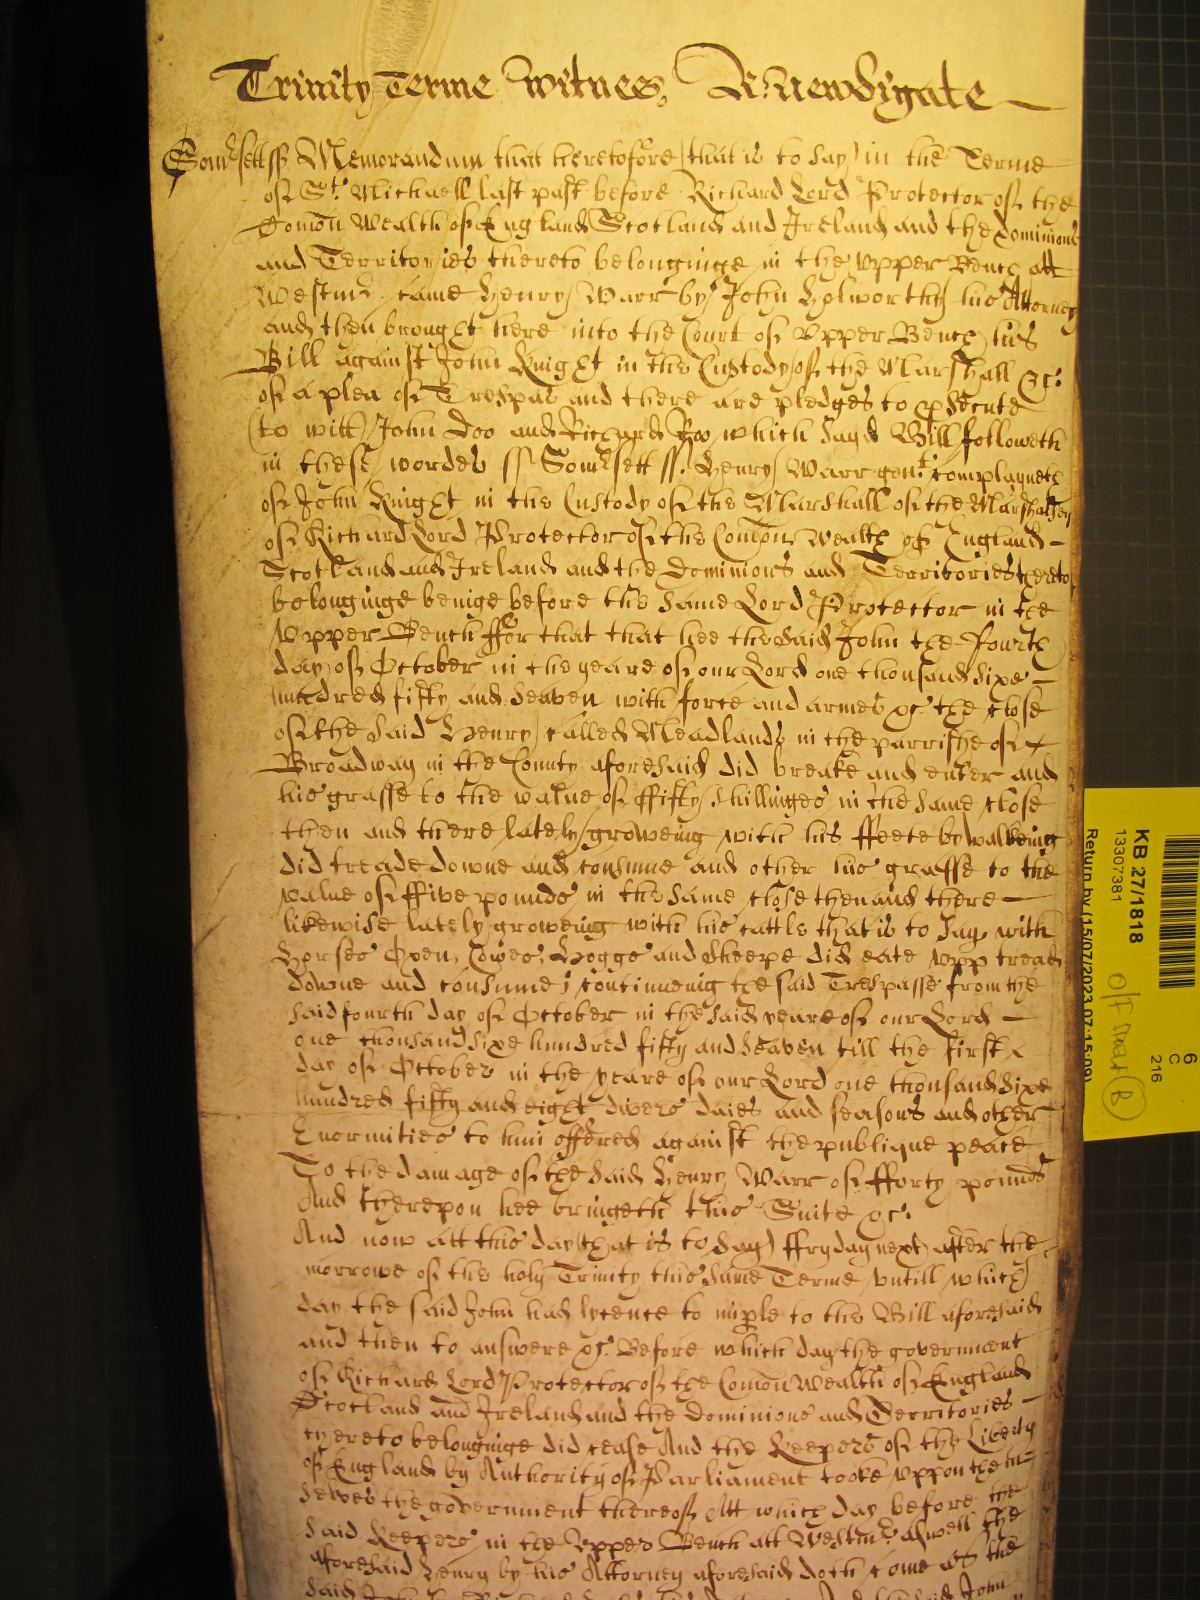 Trinity Terme Witnes, R: Newdigate
Som̃sett ss Memorandum that heretofore (that is to say) in the Terme
of St. Michaell last past before Richard Lord Protector of the
Com̃on Wealth of England Scotland and Ireland and the dominions
and Territories thereto belonginge in the Vpper Bench att
Westmr. came Henry Warr by John Holworthy his Attorney
and then brought here into the Court of Vpper Bench his
Bill against John Knight in the Custody of the Marshall &c:
of a plea of Trespas and there are pledges to psecute
(to witt) John Doo and Richard Roo which said Bill followeth
in these wordes ss Som̃sett ss. Henry Warr gent. complayneth
of John Knight in the Custody of the Marshall of the Marshalsey
of Richard Lord Protector of the Com̃on Wealth of England
Scotland and Ireland and the Dominions and Territories thereto
belonginge beinge before the same Lord Protector in the
Vpper Bench ffor that that hee the said John the fourth
day of October in the yeare of our Lord one thousand sixe
hundred fifty and seaven with force and armes &c. the close
of the said Henry called Meadlands in the parrishe of
Broadway in the County aforesaid did breake and enter and
his grasse to the value of ffifty shillinges in the same close
then and there lately groweing with his ffeete by walkeing
did treade downe and consume and other his grasse to the
value of ffive pounds in the same close then and there
likewise lately groweing with his cattle that is to say with
Horses Oxen, Cowes, Hoggs and Sheepe did eate vpp treade
downe and consume; continueing the said Trespasse from the
said fourth day of October in the said yeare of our Lord
one thousand sixe hundred fifty and seaven till the first
day of October in the yeare of our Lord one thousand sixe
hundred fifty and eight divers daies and seasons and other
Enormities to him offered against the publique peace
To the damage of the said Henry Warr of fforty pounds
And therepon hee bringeth this Suite &c:
And now att this day (that is to say) ffryday next after the
morrowe of the holy Trinity this same Terme vntill which
day the said John had lycence to imple to the Bill aforesaid
and then to answere &c. Before which day the government
of Richard Lord Protector of the Com̃on Wealth of England
Scotland and Ireland and the Dominions and Territories
thereto belonginge did cease And the Keepers of the Liberty
of England by Authority of Parliament tooke vppon them
selves the government thereof Att which day before the
said Keepers in the Vpper Bench att Westmr. aswell the
aforesaid Henry by his Attorney aforesaid doth come as the
said John
KB 27/1818
13307381
Return by (15/07/2023 07:15:09)
6
C
216